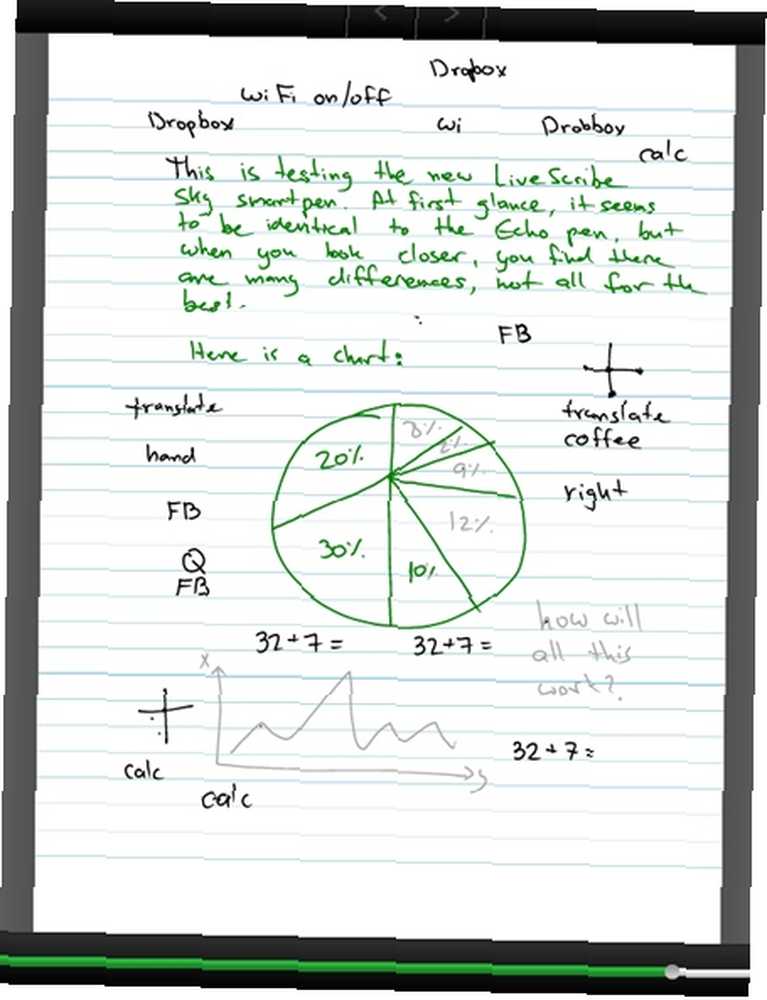 Dropbox
WiFi on/off
Dropbox wi Drobbox
calc
This is testing the new LiveScribe
Sky smartpen. At first glance, it seems
to be identical to the Echo pen, but
when you look closer, you find there
are many differences, not all for the
best.
FB
Here is a chart:
translate
translate
coffee
hand
right
FB
Q
FB
8%
2%
9%
20%
12%
30%
10%
32+7=
32+7=
how will
all this
work?
x
y
32+7=
calc
calc